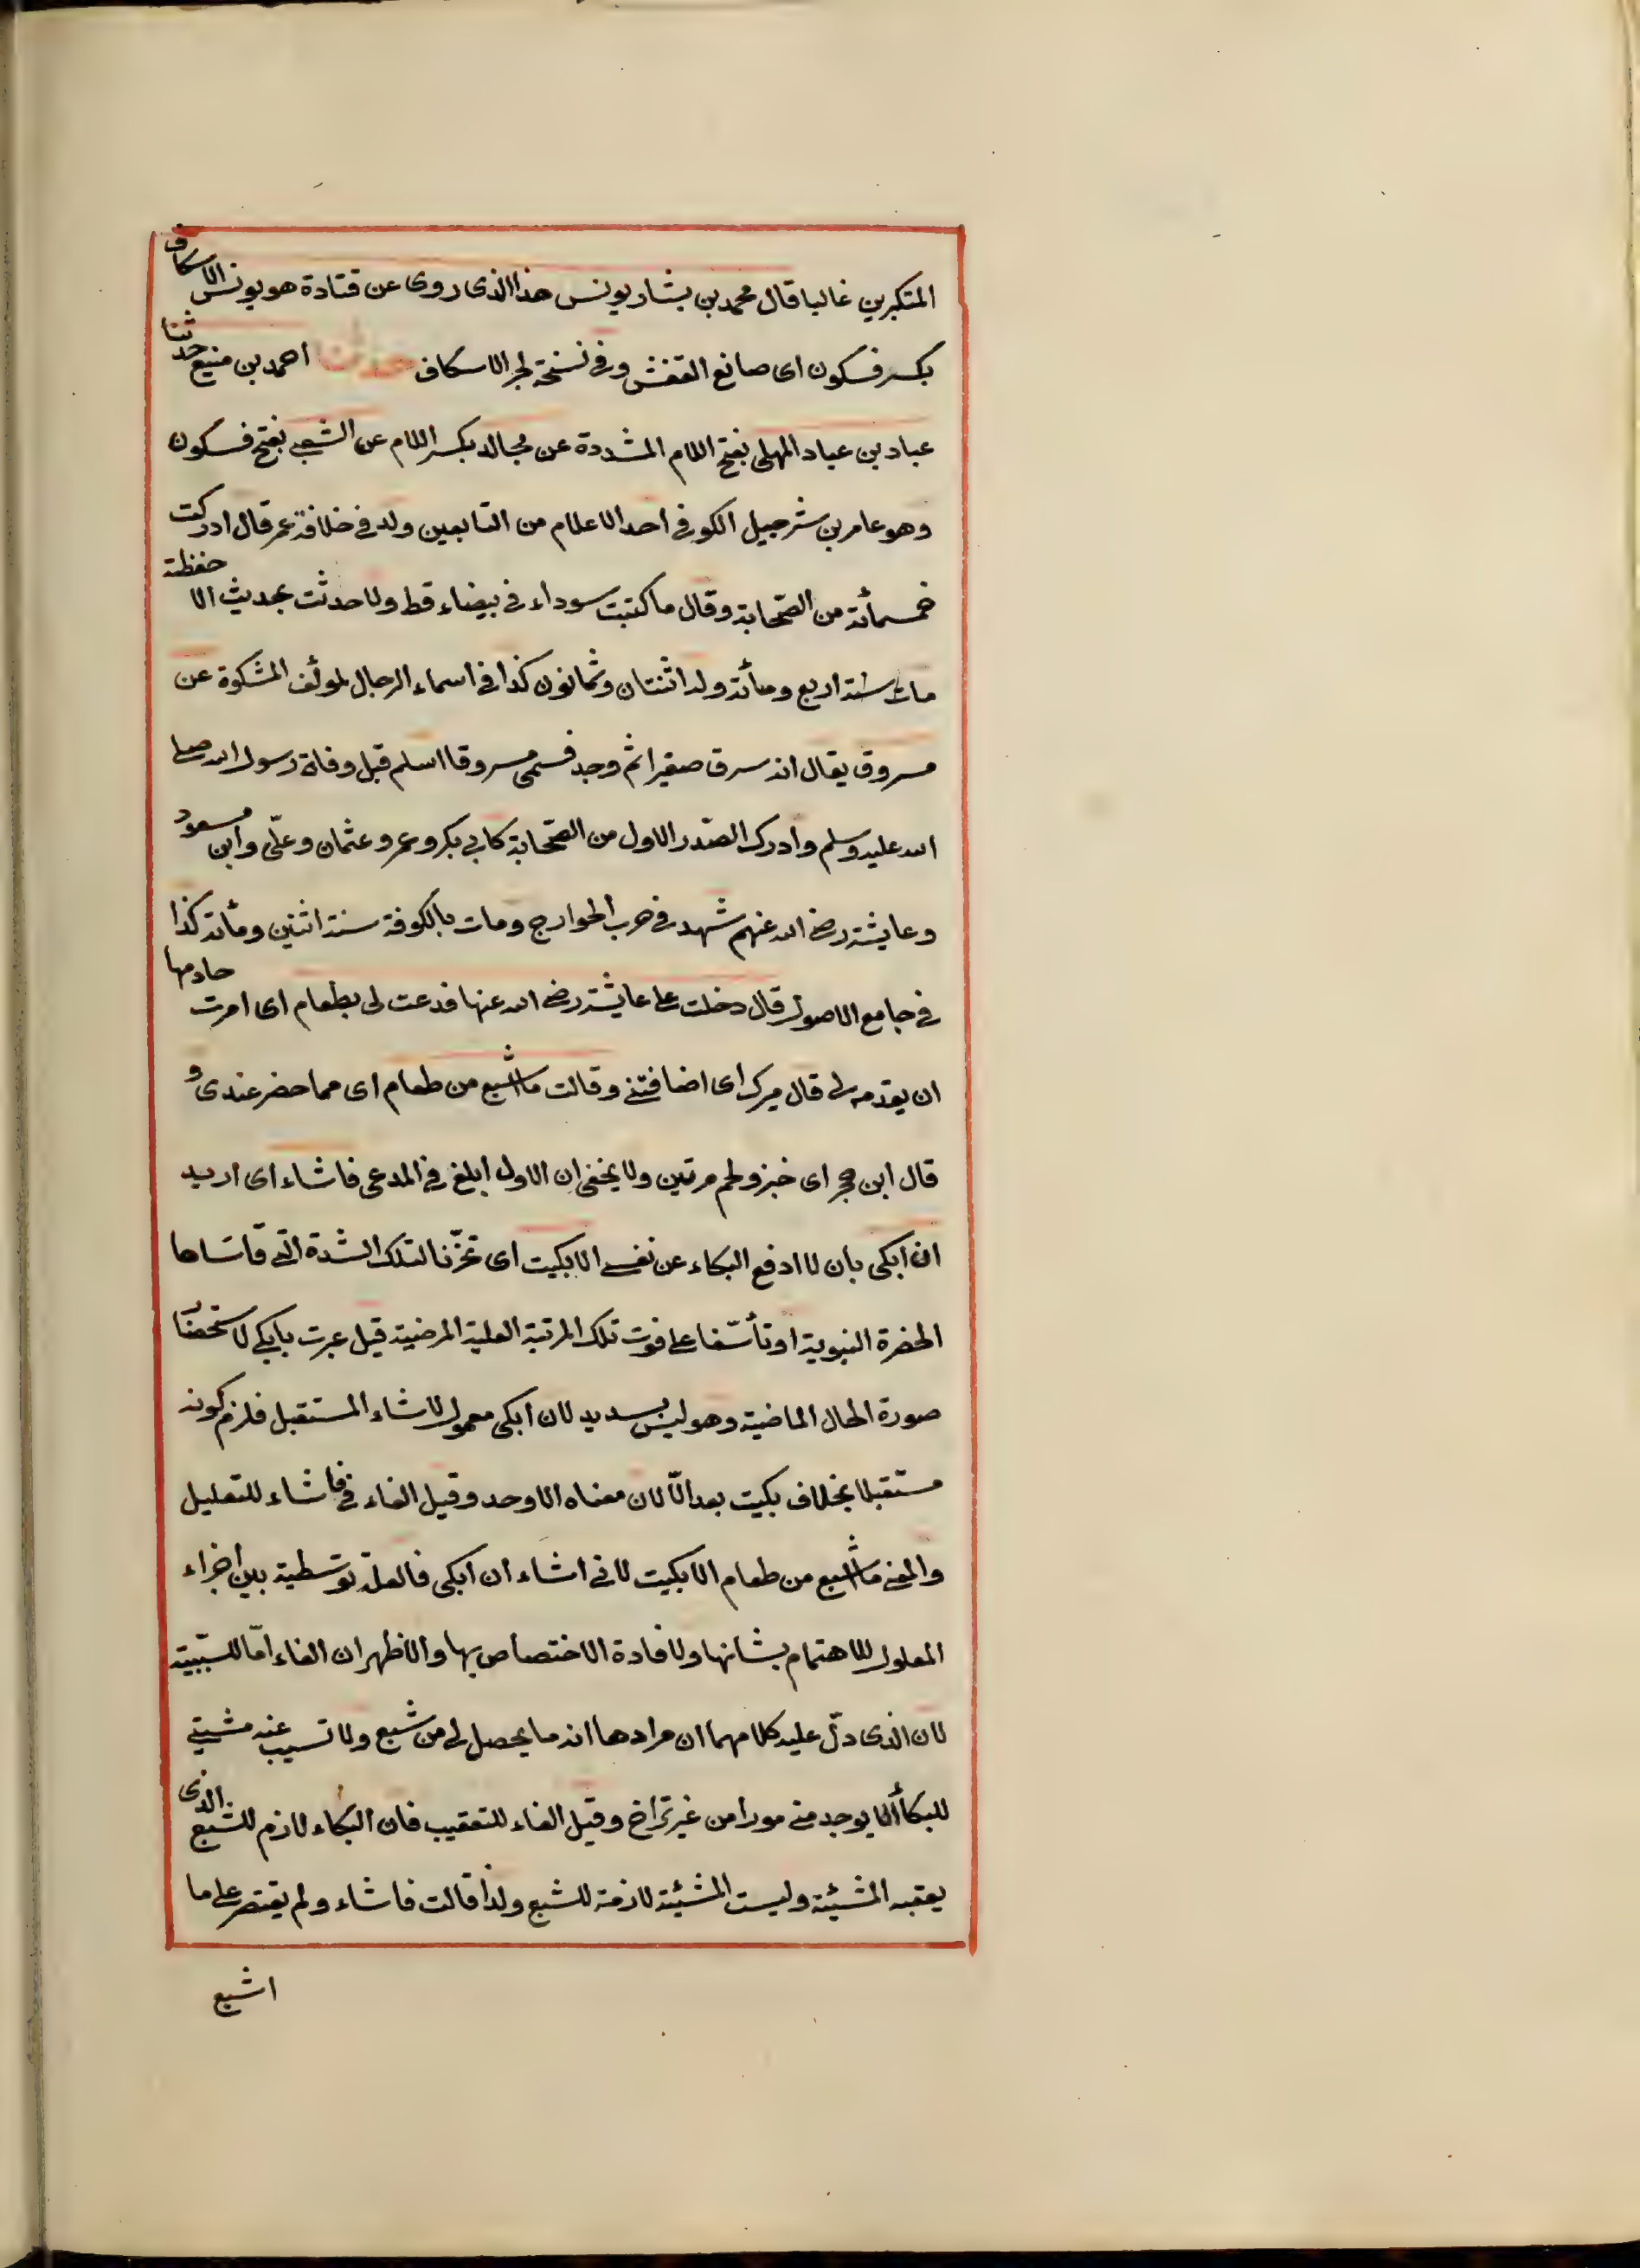 المتكبرين غالبا قال محمد بن بشار يونس هذا الذى روى عن قتادة هو يونس الاسكاف
بكسر فسكون اى صانع القفش وفى نسخة بجر الاسكاف حدثنا احمد بن منيع حدثنا
عباد بن عباد المهلبى بفتح اللام المشددة عن مجالد بكسر اللام عن الشعبى بفتح فسكون
وهو عامر بن شرحبيل الكوفى احد الاعلام من التابعين ولد فى خلافة عمر قال ادركت
خمسمائة من الصحابة وقال ما كتبت سوداء فى بيضاء قط ولا حدثت بحديث الا حفظته
مات سنة اربع ومائة وله اثنتان وثمانون كذا فى اسماء الرجال لمؤلف المشكوة عن
مسروق يقال انه سرق صغيرا ثم وجد فسمى مسروقا اسلم قبل وفاة رسول الله صلى
الله عليه وسلم وادرك الصدر الاول من الصحابة كابى بكر وعمر وعثمان وعلى وابن مسعود
وعايشة رضى الله عنهم شهد فى حرب الخوارج ومات بالكوفة سنة اثنين ومائة كذا
فى جامع الاصول قال دخلت على عايشة رضى الله عنها فدعت لى بطعام اى امرت خادمها
ان يقدمه لى قال ميرك اى اضافتنى وقالت ما اشبع من طعام اى مما حضر عندى و
قال ابن حجر اى خبز ولحم مرتين ولا يخفى ان الاول ابلغ فى المدعى فاشاء اى اريد
ان ابكى بان لا ادفع البكاء عن نفسى الا بكيت اى تحزنا لتلك الشدة التى قاساها
الحضرة النبوية او تأسفا على فوت تلك المرتبة العلية المرضية قيل عبرت بابكى لاستحضار
صورة الحال الماضية وهو ليس بسديد لان ابكى معمول لاشاء المستقبل فلزم كونه
مستقبلا بخلاف بكيت بعد الّا لان معناه الا وجد وقيل الفاء فى فاشاء للتعليل
والمعنى ما اشبع من طعام الا بكيت لانى اشاء ان ابكى فالعلة توسطية بين اجزاء
المعلول للاهتمام بشانها ولافادة الاختصاص بها والاظهر ان الفاء امّا للسببية
لان الذى دل عليه كلامهما ان مرادها انه ما يحصل لى من شبع ولا تسبب عنه مشيتى
للبكأ الا يوجد منى مورا من غير تراخ وقيل الفاء للتعقيب فان البكاء لازم للشبع الذى
يعقبه المشيئة وليست المشيئة لازمة للشبع ولذا قالت فاشاء ولم يقتصر على ما
اشبع